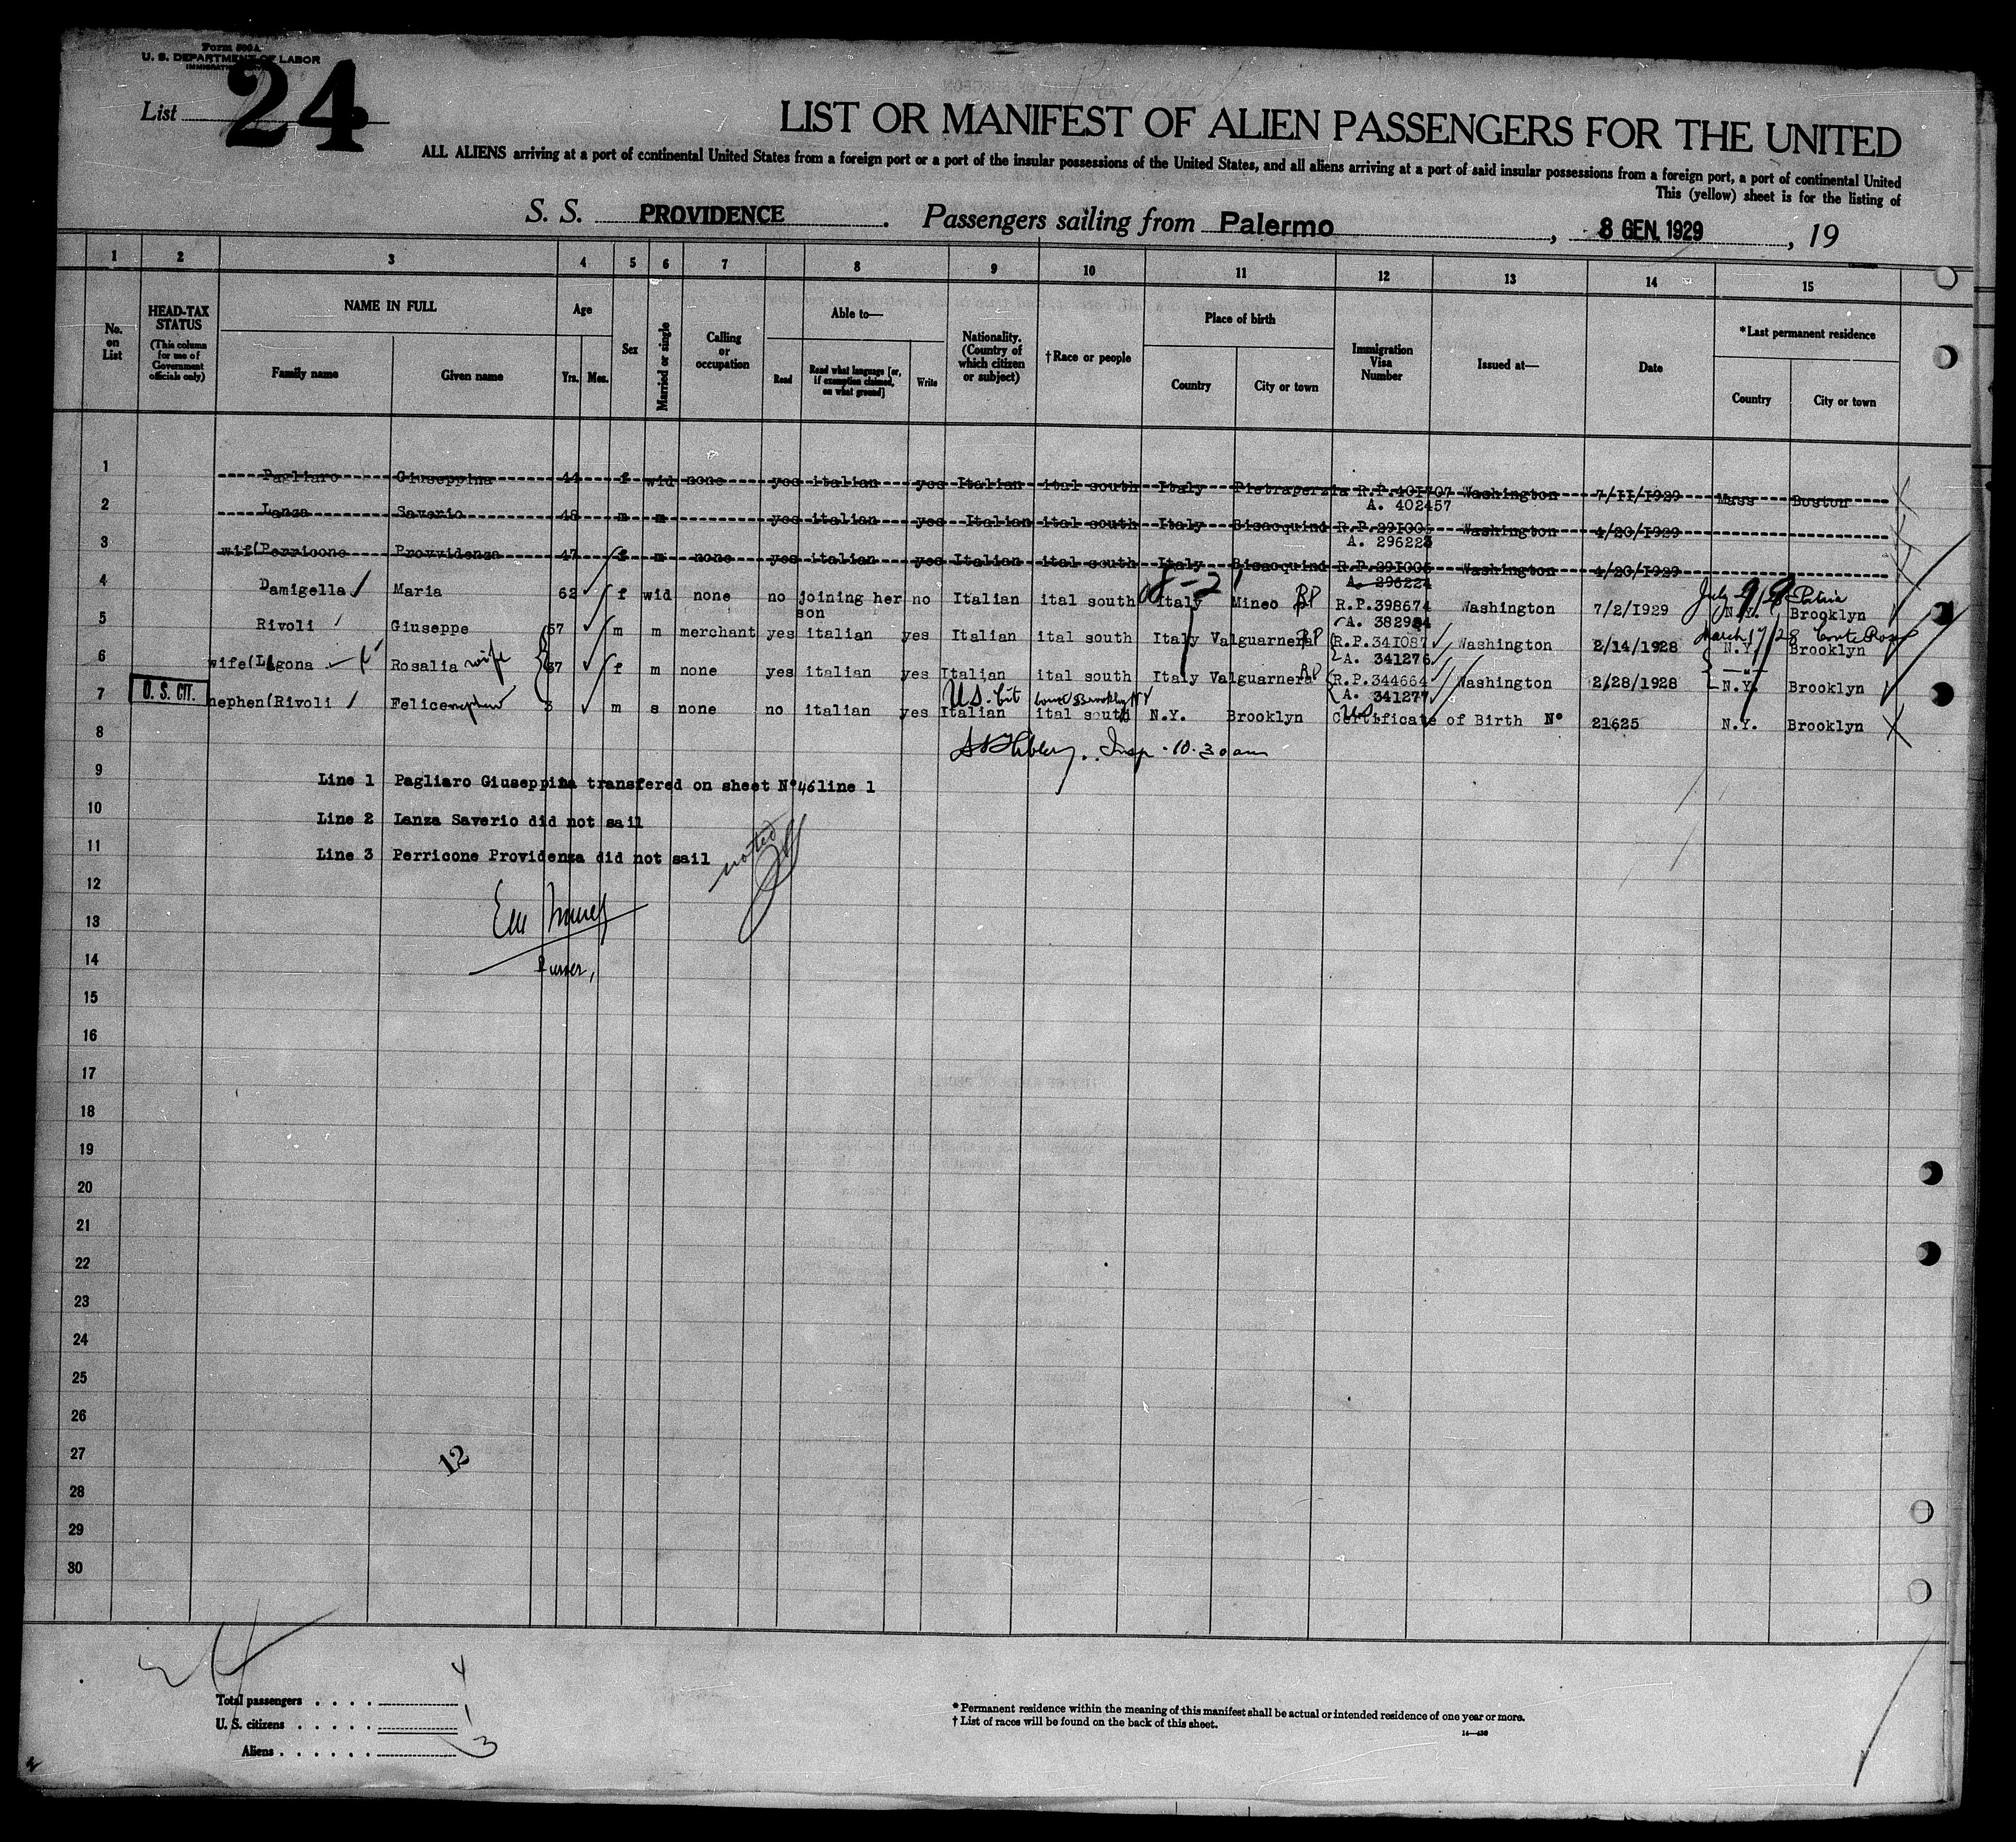 Form 500A
U. S. DEPARTMENT OF LABOR
List 24
LIST OR MANIFEST OF ALIEN PASSENGERS FOR THE UNITED
ALL ALIENS arriving at a port of continental United States from a foreign port or a port of the insular possessions of the United States, and all aliens arriving at a port of said insular possessions from a foreign port, a port of continental United
This (yellow) sheet is for the listing of
S. S. PROVIDENCE. Passengers sailing from Palermo, 8 GEN. 1929, 19
1 2 3 4 5 6 7 8 9 10 11 12 13 14 15
No. on List
HEAD-TAX STATUS
(This column for use of Government officials only)
NAME IN FULL
Family name Given name
Age
Yrs. Mos.
Sex
Married or single
Calling or occupation
Able to—
Read
Read what language [or, if exemption claimed, on what ground]
Write
Nationality. (Country of which citizen or subject)
†Race or people
Place of birth
Country City or town
Immigration Visa Number
Issued at—
Date
*Last permanent residence
Country City or town
1 Pagliaro Giuseppina 44 f wid none yes italian yes Italian ital south Italy Pietraperzia R.P.401707 Washington 7/11/1929 Mass Boston
A. 402457
2 Lanza Saverio 48 m m yes italian yes Italian ital south Italy Bisacquind R.P.291005 Washington 4/20/1929
A. 296223
3 wif(Perricone Provvidenza 47 f m none yes italian yes Italian ital south Italy Bisacquind R.P.291006 Washington 4/20/1929
A. 296224
July 9/28 Patria
4 Damigella Maria 62 f wid none no joining her son no Italian ital south Italy Mineo R.P.398674 Washington 7/2/1929 N.Y. Brooklyn
A. 382984
March 17/28 Conte Rosso
5 Rivoli Giuseppe 57 m m merchant yes italian yes Italian ital south Italy Valguarnera R.P.341087 Washington 2/14/1928 N.Y. Brooklyn
A. 341276
6 wife(Lagona Rosalia wife 37 f m none yes italian yes Italian ital south Italy Valguarnera R.P.344664 Washington 2/28/1928 N.Y. Brooklyn
A. 341277
U.S. Cit
7 U. S. CIT. nephen(Rivoli Felice nephew 3 m s none no italian yes Italian ital south N.Y. Brooklyn Certificate of Birth N° 21625 N.Y. Brooklyn
8 Insp. 10.30 am
9 Line 1 Pagliaro Giuseppina transfered on sheet N° 46 line 1
10 Line 2 Lanza Saverio did not sail
11 Line 3 Perricone Providenza did not sail
noted
12
13
14 Purser,
15
16
17
18
19
20
21
22
23
24
25
26
27
12
28
29
30
Total passengers 4
U. S. citizens 1
Aliens 3
* Permanent residence within the meaning of this manifest shall be actual or intended residence of one year or more.
† List of races will be found on the back of this sheet.
14—430